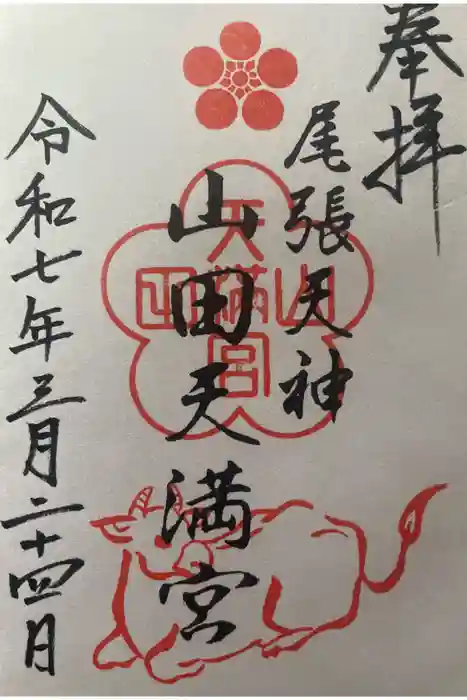 奉拝
尾張天神
山田天満宮
天満宮
山田
令和七年三月二十四日